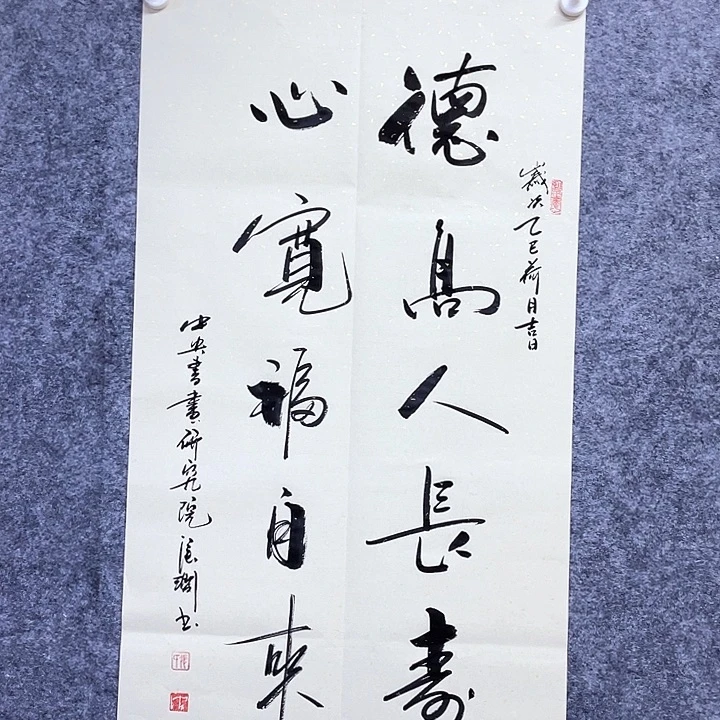 歲次乙巳荷月吉日
德高人長壽
心寬福自來
中央書畫研究院
书